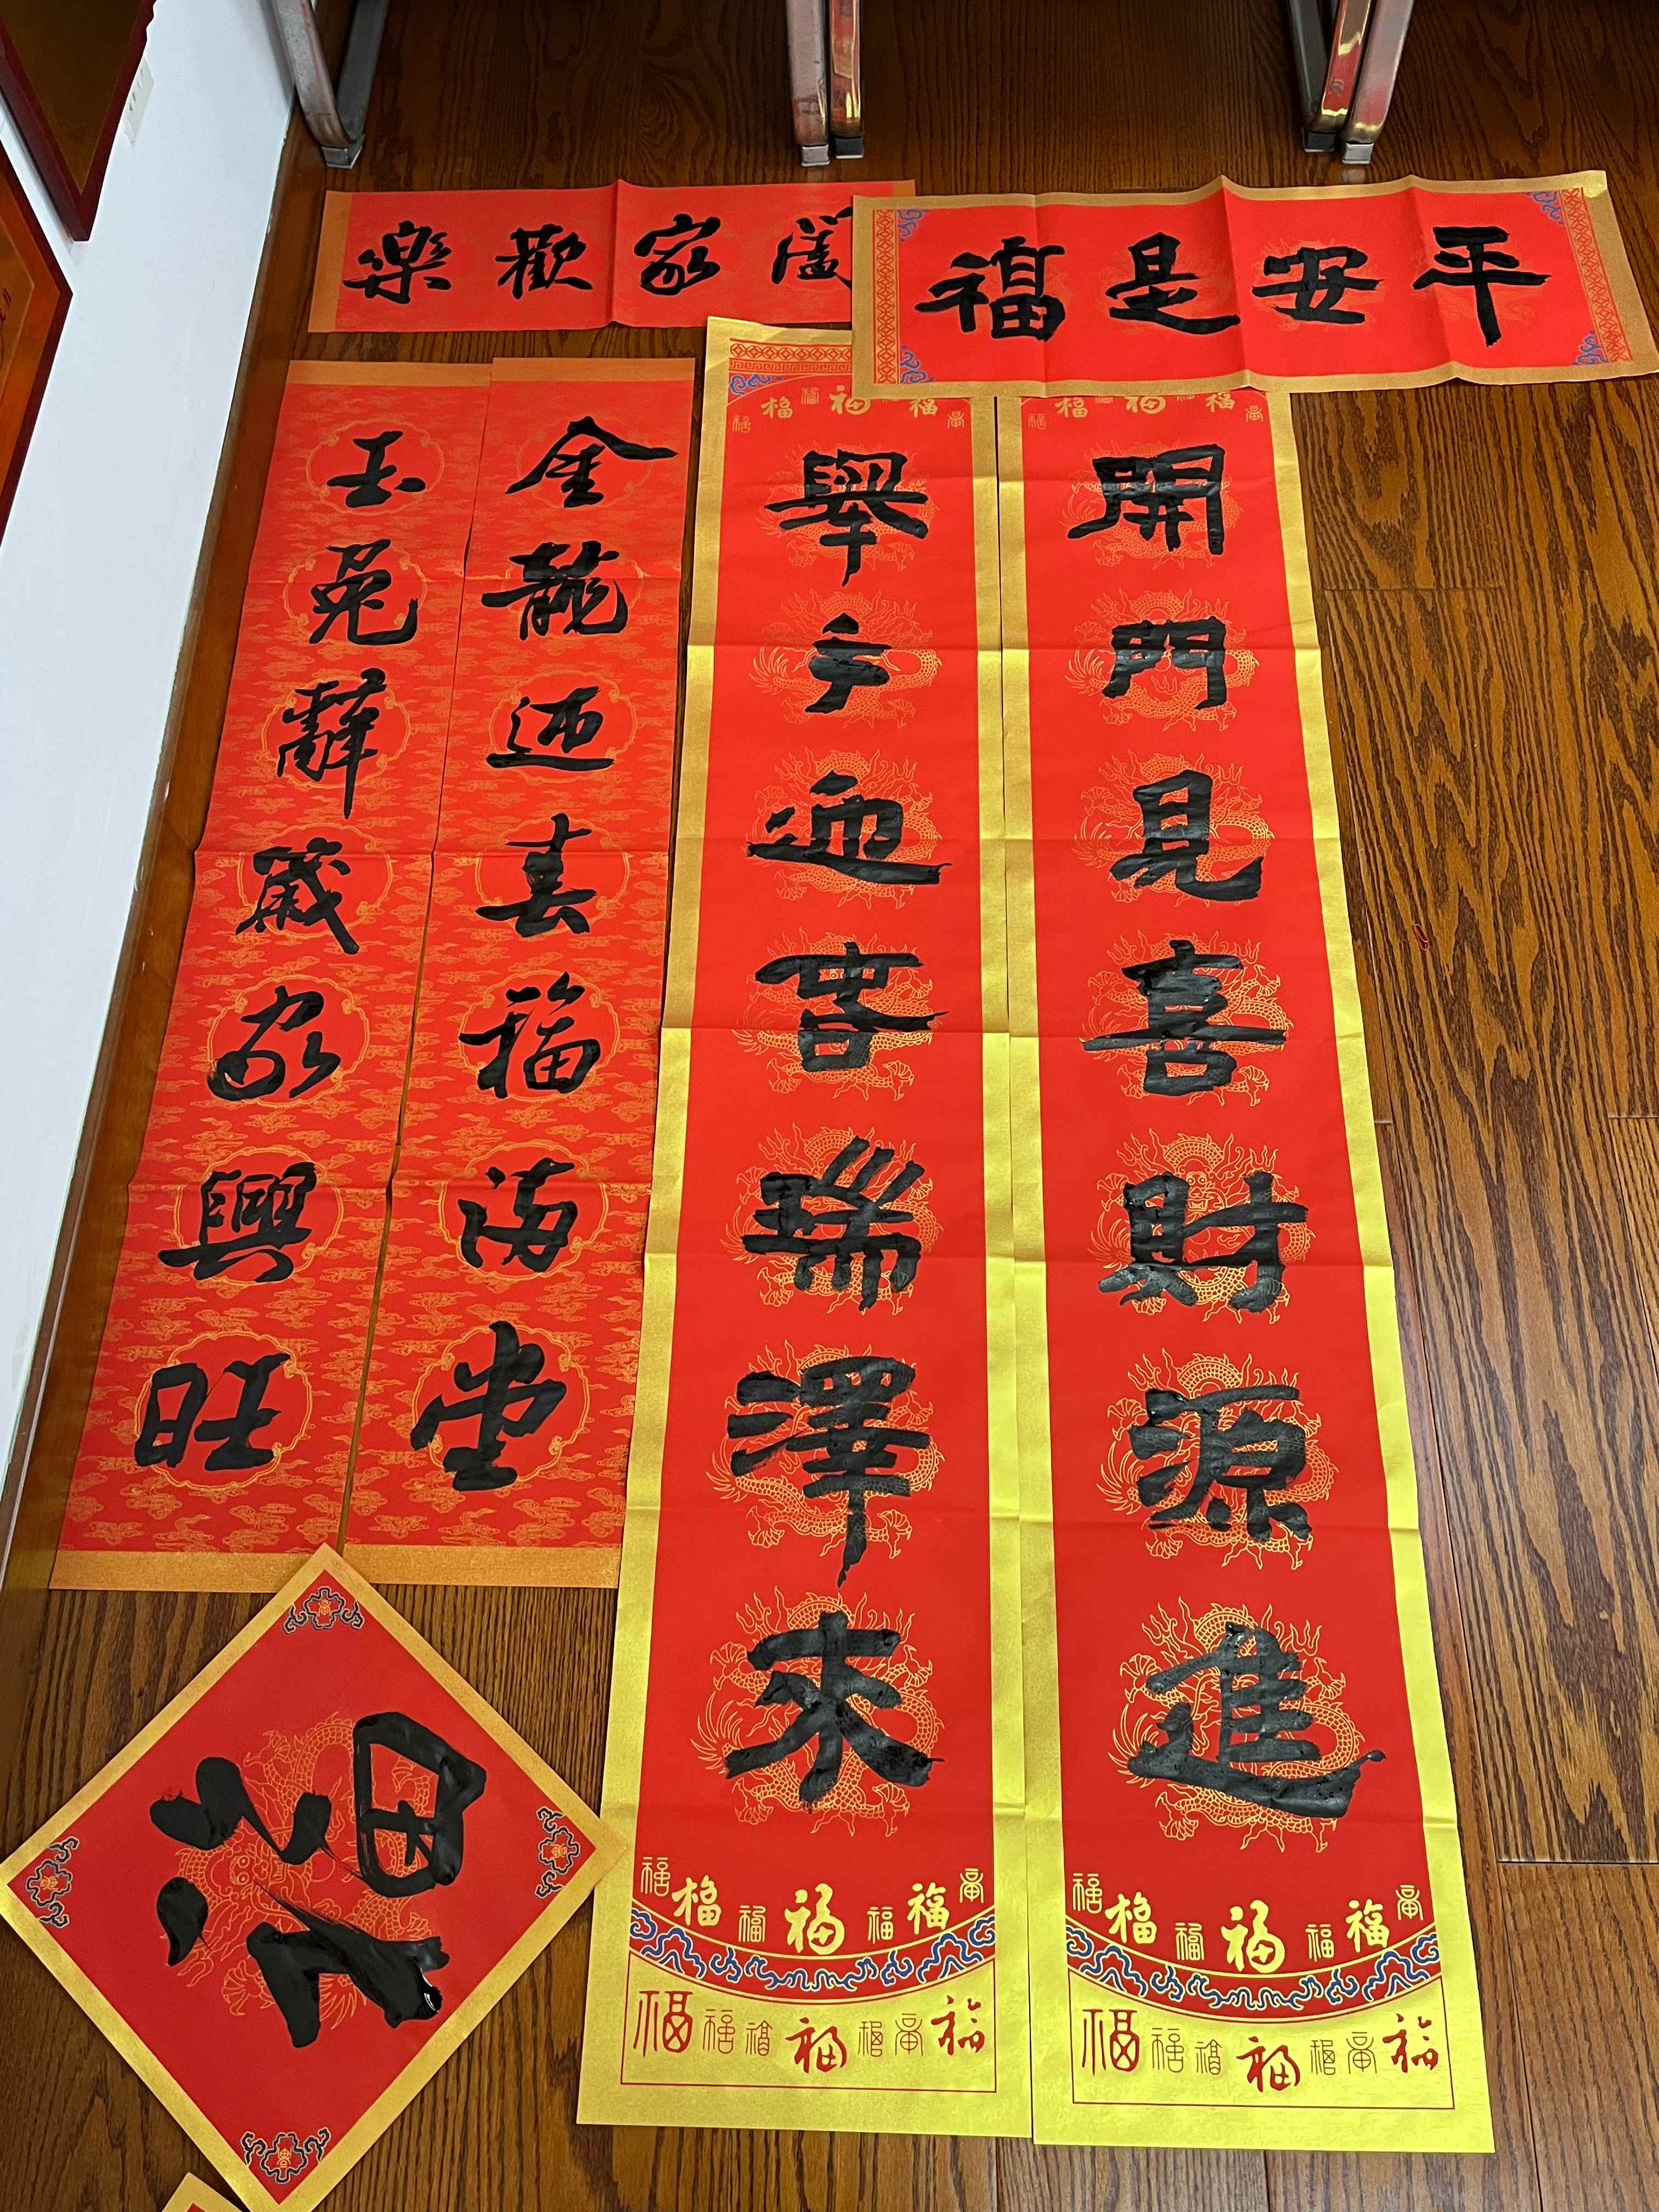 平安是福
開門見喜財源進
舉步迎春瑞澤來
闔家歡樂
金龍迎春福滿堂
玉兔辭歲家興旺
福
福 福 福 福 福 福 福
福 福 福 福 福 福 福
福 福 福 福 福 福 福
福 福 福 福 福 福 福